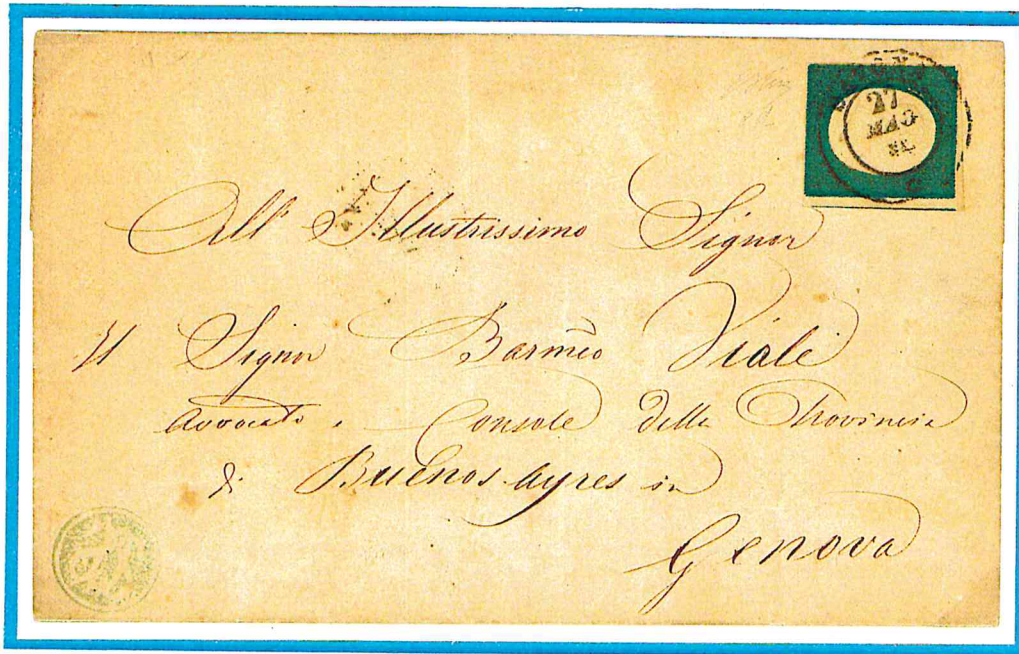 27
MAG
All' Illustrissimo Signor
Il Signor Barm̃eo Viale
Avvocato, Console della Provincia
di Buenos Ayres in
Genova